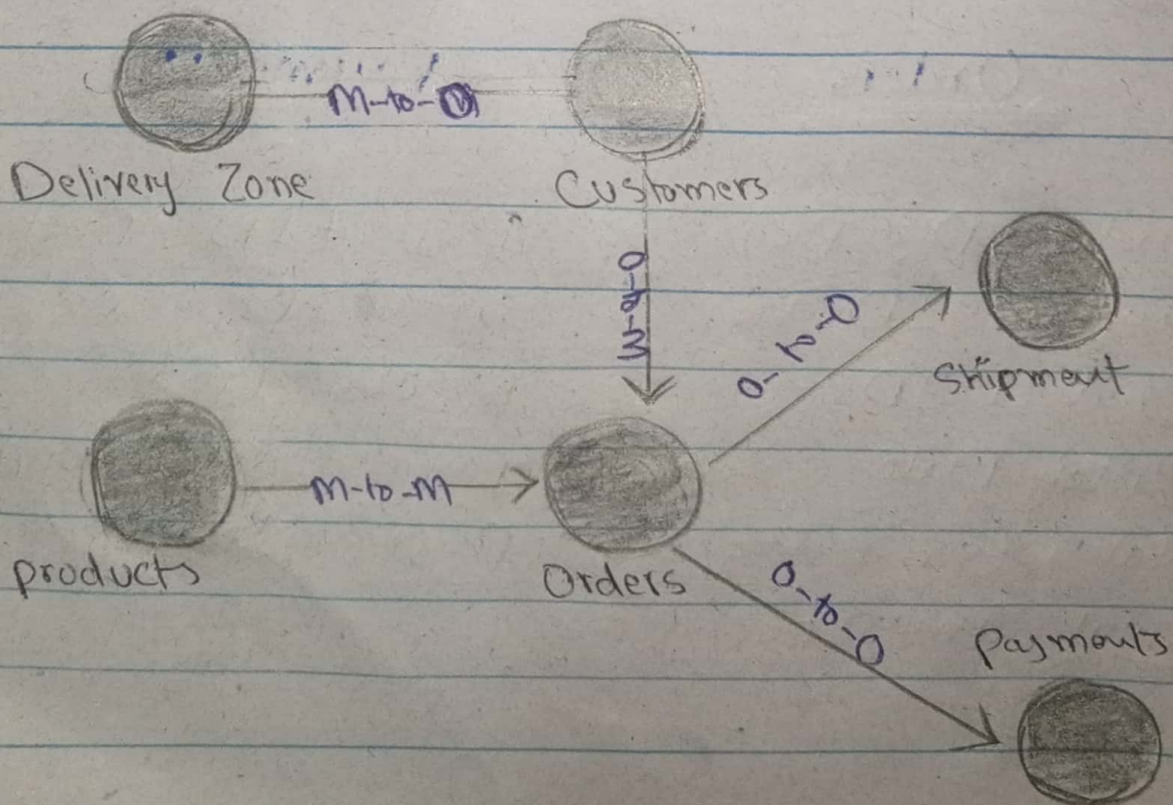 M-to-M
Delivery Zone
Customers
O-to-M
O-to-O
Shipment
M-to-M
products
Orders
O-to-O
Payments